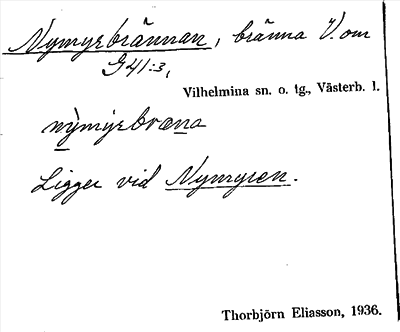 Nymyrbrännan, bränna V. om
G41:3,
Vilhelmina sn. o. tg., Västerb. l.
nỳmyrbræna
Ligger vid Nymyren.
Thorbjörn Eliasson, 1936.